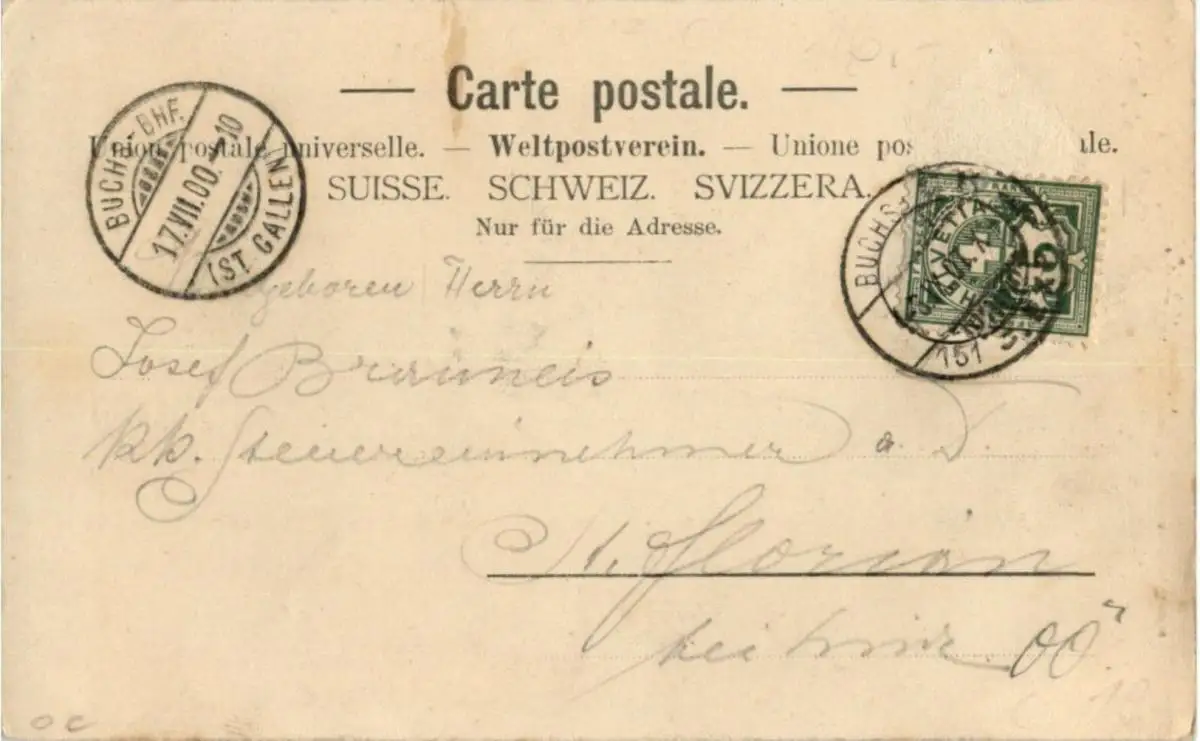 Carte postale.
Union postale universelle. — Weltpostverein. — Unione pos ale.
SUISSE. SCHWEIZ. SVIZZERA.
Nur für die Adresse.
BUCHS BHF.
17.VII.00.-10
(ST. GALLEN)
HELVETIA
BUCHS
151
geboren Herrn
Josef Brauneis
kk. Steuereinnehmer a. D.
St. Florian
bei Linz OÖ